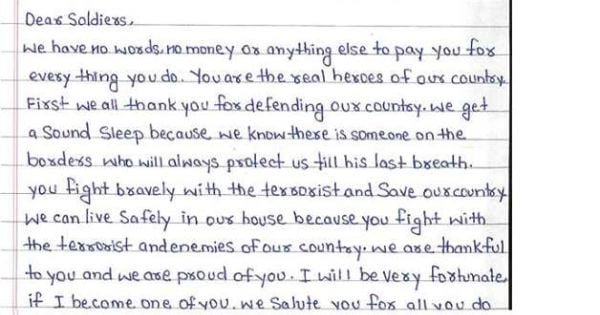 Dear Soldiers,
We have no words, no money or anything else to pay you for
every thing you do. You are the real heroes of our country.
First we all thank you for defending our country. We get
a Sound Sleep because we know there is someone on the
borders who will always protect us till his last breath.
you fight bravely with the terrorist and Save our country
We can live Safely in our house because you fight with
the terrorist and enemies of our country. We are thankful
to you and we are proud of you. I will be very fortunate
if I become one of you. We Salute you for all you do